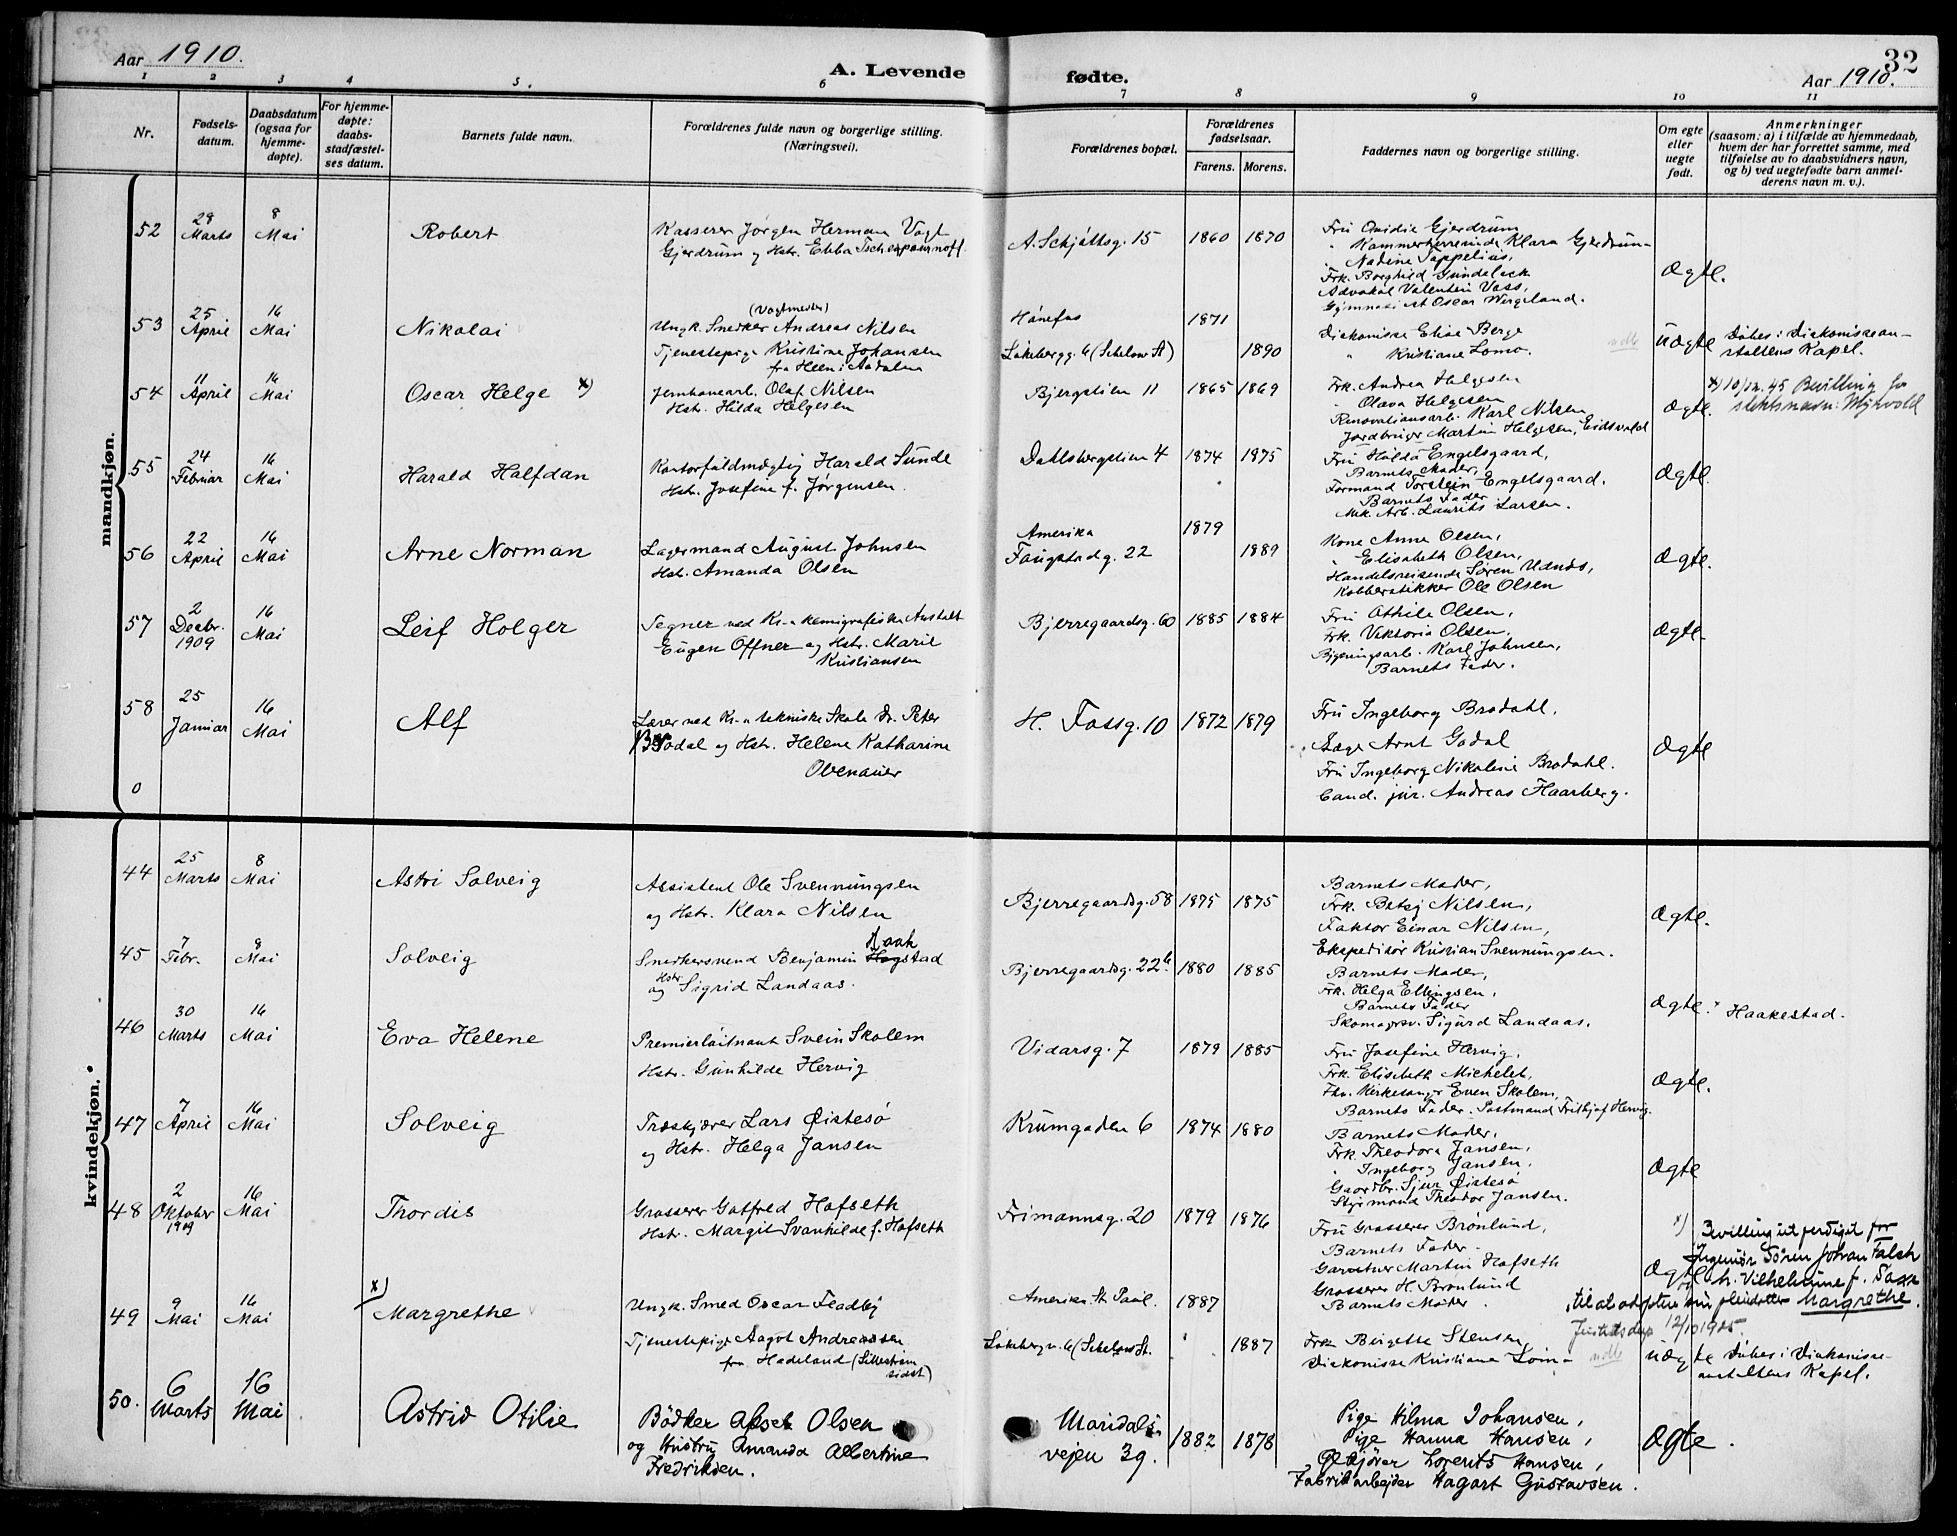 Aar 1910.
A. Levende fødte.
32
Aar 1910.
1 2 3 4 5. 6 7 8 9 10 11
Nr.
Fødsels-
datum.
Daabsdatum
(ogsaa for
hjemme-
døpte).
For hjemme-
døpte:
daabs-
stadfæstel-
ses datum.
Barnets fulde navn.
Forældrenes fulde navn og borgerlige stilling.
(Næringsvei).
Forældrenes bopæl.
Forældrenes
fødselsaar.
Farens. Morens.
Faddernes navn og borgerlige stilling.
Om egte
eller
uegte
født.
Anmerkninger
(saasom: a) i tilfælde av hjemmedaab,
hvem der har forrettet samme, med
tilføielse av to daabsvidners navn,
og b) ved uegtefødte barn anmel-
derens navn m. v.).
mandkjøn.
52
28
Marts
8
Mai
Robert
Kasserer Jørgen Herman Vogt
Gjerdrum og Hstr. Ebba
A. Schjøttsg. 15
1860 1870
Fru Ovidie Gjerdrum
" Kammerherreinde Klara Gjerdrum
Nadine Tappelius,
Frk. Borghild Gundelach
Advokat Valentin Voss,
Gymnasiast Oscar Wergeland.
Ægte.
53
25
April
16
Mai
Nikolai
(Vogtmester)
Ungk. Snedker Andreas Nilsen
Tjenestepige Kristine Johansen
fra Heen i Aadalen
Hønefos
Lakebergg. 6 (Schelow St)
1871
1890
Diakonisse Elise Berge
" Kristiane Lomo.
Uægte
Døbes: Diakonissean-
staltens Kapel.
54
11
April
16
Mai
Oscar Helge x)
Jernbanearb. Olaf Nilsen
Hstr. Hilda Helgesen
Bjergstien 11
1865 1869
Frk. Andrea Helgesen
" Olava Helgesen
Renovationsarb. Karl Nilsen
Jordbruger Martin Helgesen, Eidsvold
Ægte.
x) 10/12. 45 Bevilling for
slektsnavn: Myrvold
55
24
Februar
16
Mai
Harald Halfdan
Kontorfuldmægtig Harald Sunde
Hstr. Josefine f. Jørgensen.
Dahlsbergstien 4
1874 1875
Fru Hulda Engelsgaard,
Barnets Moder,
Formand Torstein Engelsgaard.
Barnets Fader
Mek. Arb. Laurits Larsen.
Ægte.
56
22
April
16
Mai
Arne Norman
Lagermand August Johnsen
Hstr. Amanda Olsen
Amerika
Faugstadg. 22
1879
1889
Kone Anna Olsen,
" Elisabeth Olsen,
Handelsreisende Søren Udnes,
Kobberstikker Ole Olsen
Ægte.
57
2
Decbr.
1909
16
Mai
Leif Holger
Tegner ved Kr.a kemigrafiske Anstalt
Eugen Offner og Hstr. Marie
Kristiansen
Bjerregaardsg. 60
1885 1884
Fru Othile Olsen,
Frk. Viktoria Olsen,
Bygningsarb. Karl Johnsen,
Barnets Fader.
Ægte.
58
25
Januar
16
Mai
Alf
Lærer ved Kr.a tekniske Skole Dr. Peter
Brødal og Hstr. Helene Katharine
Obenauer
H. Fossg. 10
1872 1879
Fru Ingeborg Brodahl,
Læge Arnt Godal
Fru Ingeborg Nikoline Brodahl.
Cand. jur. Andreas Haarberg.
Ægte
0
kvindekjøn.
44
25
Marts
8
Mai
Astri Solveig
Assistent Ole Svennungsen
og Hstr. Klara Nilsen
Bjerregaardsg. 58
1875 1875
Barnets Moder,
Frk. Betsy Nilsen,
Faktor Einar Nilsen,
Ekspeditør Kristian Svennungsen.
Ægte.
45
7
Febr.
8
Mai
Solveig
Haak
Snedkersvend Benjamin Hogstad
og Hstr Sigrid Landaas.
Bjerregaardsg. 22b
1880 1885
Barnets Moder,
Frk. Helga Ellingsen,
Barnets Fader
Skomagersv. Sigurd Landaas.
Ægte.
Haakestad.
46
30
Marts
16
Mai
Eva Helene
Premierløitnant Svein Skolem
Hstr. Gunhilde Hervig
Vidarsg. 7
1879 1885
Fru Josefine Hervig,
Frk. Elisabeth Michelet,
Fhv. Kirkesanger Even Skolem,
Barnets Fader. Postmand Fridtjof Hervig.
Ægte.
47
7
April
16
Mai
Solveig
Træskjærer Lars Øistesø
og Hstr. Helga Jansen
Krumgaden 6
1874 1880
Barnets Moder,
Frk. Theodora Jansen,
" Ingeborg Jansen,
Gaardbr. Sjur Øistesø
Styrmand Theodor Jansen.
Ægte
48
2
Oktober
1909
16
Mai
Thordis
Grosserer Gotfred Hofseth
Hstr. Margit Svanhilde f. Hofseth
Frimannsg. 20
1879 1876
Fru Grosserer Brønlund,
Barnets Fader.
Gartner Martin Hofseth
Grosserer H. Brønlund
Ægte
49
9
Mai
16
Mai
x)
Margrethe
Ungk. Smed Oscar Fladby
Tjenestepige Aagot Andreassen
fra Hadeland (Lillestrøm
sidst)
Amerika St. Paul.
Lakebergg. 6 (Schelow St.
1887
1887
Barnets Moder
Frk. Birgitte Stensen
Diakonisse Kristiane Lomo
uægte
x) Bevilling utferdiget for
Ingeniør Sören Johan Falch
og h. Vilhelmine f. Saxe
til at adoptere sin pleiedatter Margrethe.
Justitsdep 12/10 1915.
Døbes i Diakonisse-
anstaltens Kapel.
50.
6
Marts
16
Mai
Astrid Otilie
Bødker Aksel Olsen
og Hustru Amanda Albertine
Fredriksen.
Maridals-
vejen 39.
1882 1878
Pige Hilma Johansen,
Pige Hanna Hansen,
Lorents Hansen,
Fabrikarbejder Hagart Gustavsen.
Ægte.